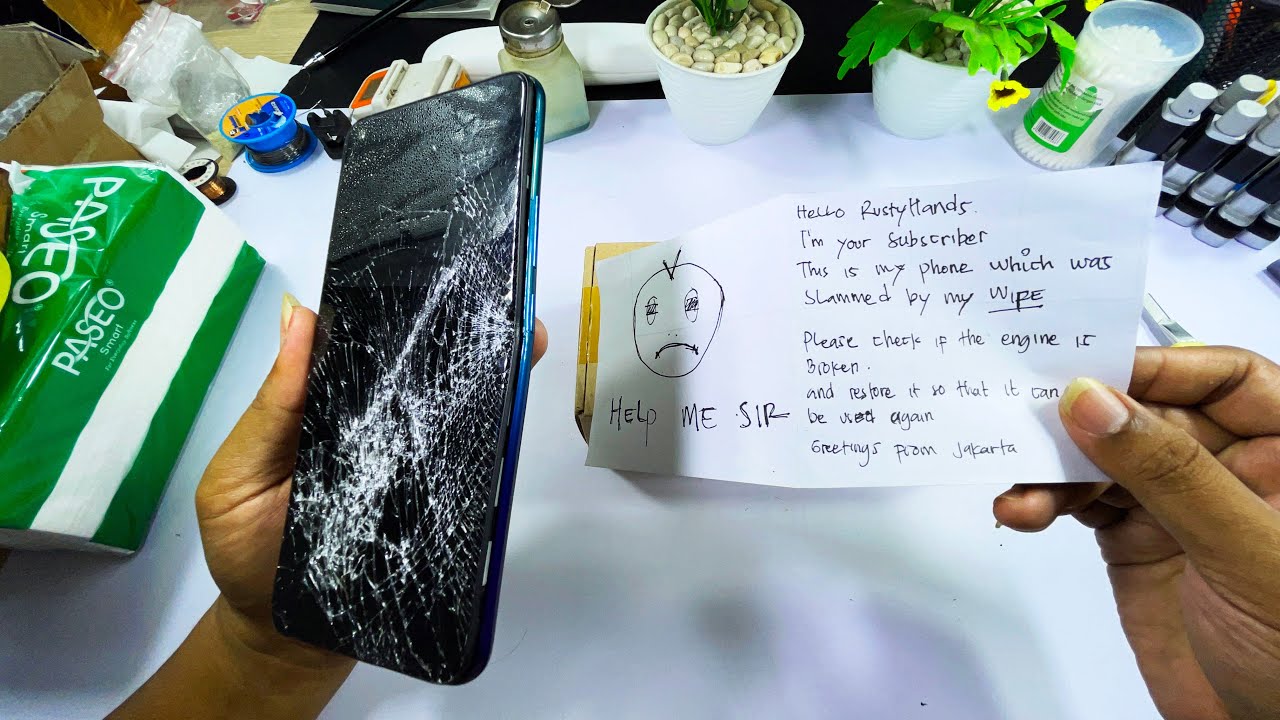 PASEO
Smart
PASEO
Smart
Hello RustyHands.
I'm your subscriber
This is my phone which was
slammed by my WIFE
Please check if the engine is
Broken.
and restore it so that it can
be used again
Greetings from Jakarta
HELP ME SIR